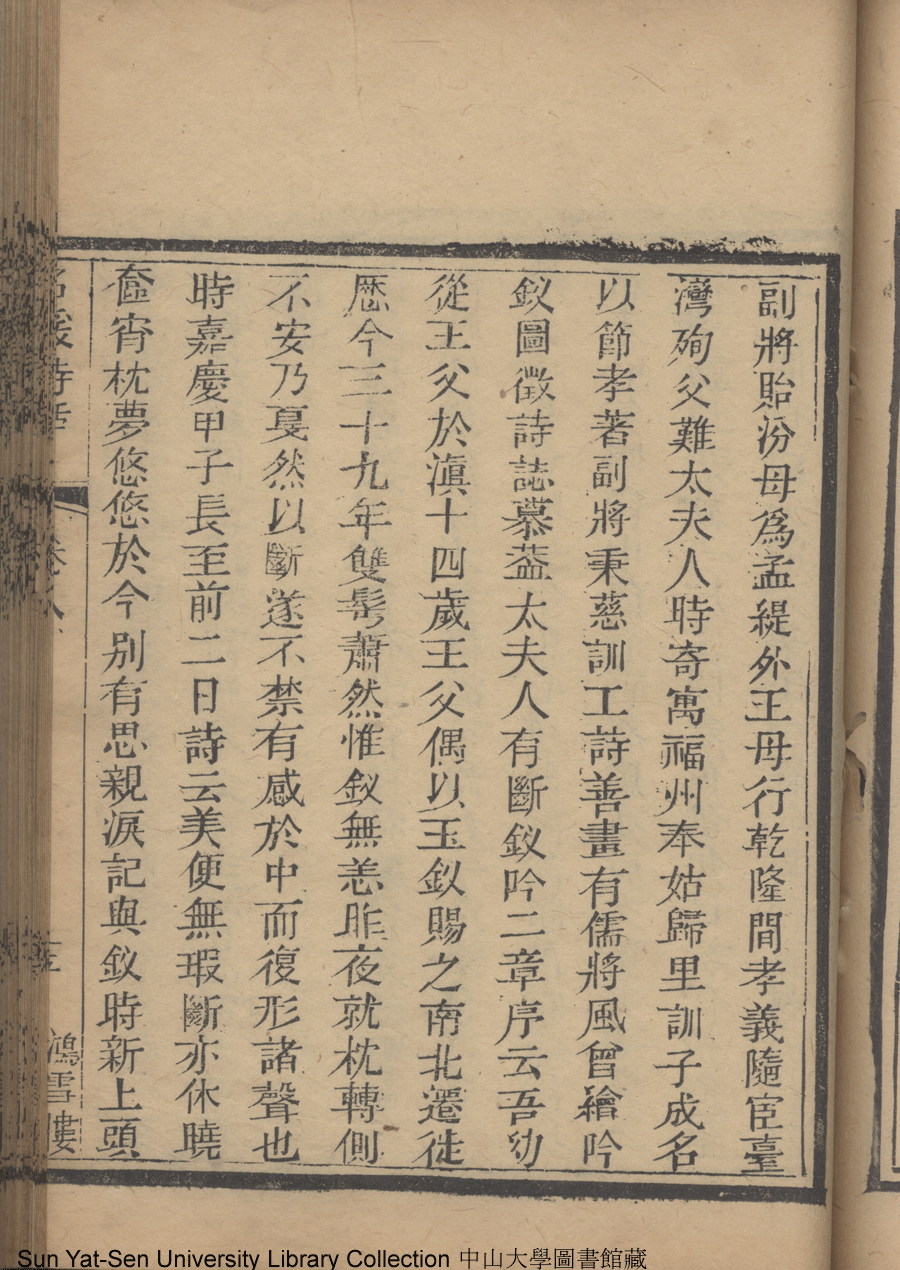 副將貽汾母爲孟緹外王母行乾隆間孝義隨宦臺
灣殉父難太夫人時寄寓福州奉姑歸里訓子成名
以節孝著副將秉慈訓工詩善畫有儒將風曾繪吟
釵圖徵詩誌慕葢太夫人有斷釵吟二章序云吾幼
從王父於滇十四歲王父偶以玉釵賜之南北遷徙
歷今三十九年雙髩蕭然惟釵無恙昨夜就枕轉側
不安乃戛然以斷遂不禁有感於中而復形諸聲也
時嘉慶甲子長至前二日詩云美便無瑕斷亦休曉
奩宵枕夢悠悠於今别有思親淚記與釵時新上頭
名媛詩話 卷八 十五 鴻雪樓
Sun Yat-Sen University Library Collection 中山大學圖書館藏